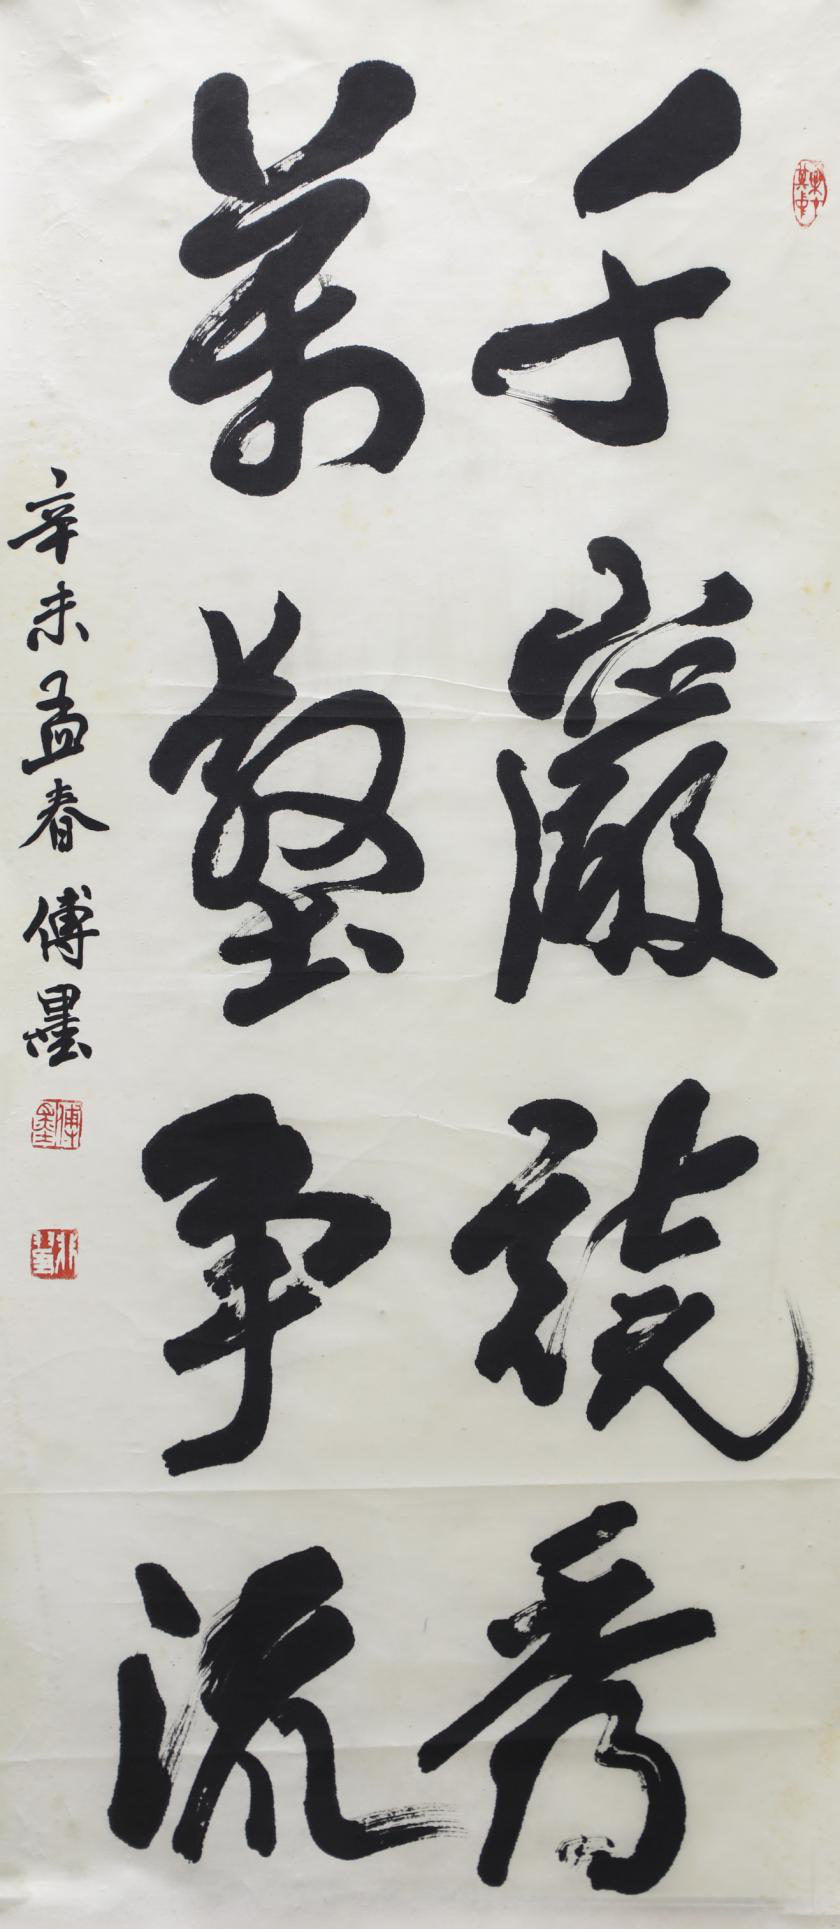 千巖競秀
萬壑爭流
辛未孟春傅墨
傅墨